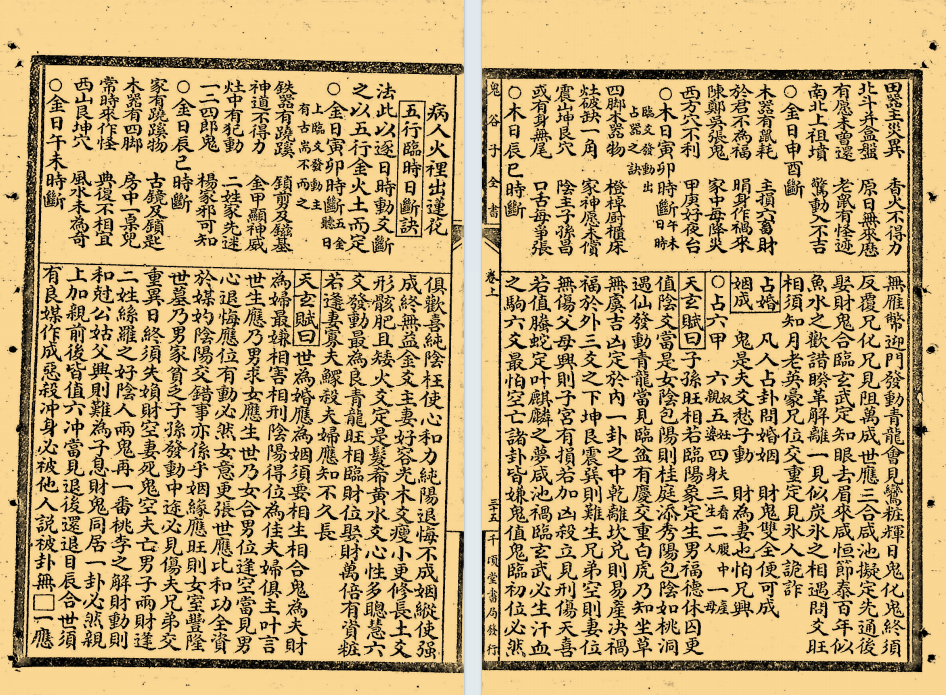 田器主災異　香火不得力
北斗并盒盤　原日無來歷
有愿未曾還　老鼠有怪迹
南北上祖墳　驚動入不吉
○金日申酉時斷
木器有鼠耗　主損六畜財
於君不為福　眀身作禍來
陳鄭吳張鬼　家中每降災
西方穴不利　甲庚好夜台
○木日寅卯時斷
午未日時
臨爻發動出
占器物之訣
四脚木器物　橙棹厨櫃床
灶破缺一角　家神愿未償
震山坤艮穴　陰主子孫昌
或有身無尾　口舌每爭張
○木日辰巳時斷
無雁幣迎門發動青龍會見鸞粧輝日鬼化鬼終須
反覆兄化兄見阻萬成世應三合咸池擬定先通後
娶財鬼合臨玄武定知眼去眉來咸恒節泰百年似
魚水之歡諧睽革解離一見似炭氷之相遇問爻旺
相須知月老英豪兄位交重定見氷人詭詐
占婚　凡人占卦問婚姻　財鬼雙全便可成
姻成　鬼是夫爻愁子動　財為妻也怕兄興
○占六甲
天玄賦曰子孫旺相若臨陽象定生男福德休囚更
值陰爻當是女陰包陽則桂庭添秀陽包陰如桃洞
遇仙發動青龍當見臨盆有慶交重白虎乃知坐草
無虞吉凶定於內一卦之中乾離坎兌則易產決禍
福於外三爻之下坤艮震巽則難生兄弟空則妻位
無傷父母興則子宮有損若加凶殺立見刑傷天喜
若值騰蛇定叶麒麟之夢咸池禍臨玄武必生汗血
之駒六爻最怕空亡諸卦皆嫌鬼值鬼臨初位必然
鬼谷子全書
卷上
三十五
千頃堂書局發行
病人火裡出蓮花
五行臨時日斷訣
法此以逐日時動爻斷
之以五行金火土而定
○金日寅卯時斷
上臨爻發動主
鉄器有蹺蹊　鎖剪及鑼墓
神道不得力　金甲顯神威
灶中有犯動　二姓家先迷
一二四郎鬼　楊家邪可知
○金日辰巳時斷
家有蹺蹊物　古鏡及鎖匙
木器有四脚　房中一桌兒
常時來作怪　典復不相宜
西山艮坤穴　風水未為奇
○金日午未時斷
俱歡喜純陰枉使心和力純陽退悔不成姻縱使强
成終無益金爻主妻好容光木爻瘦小更修長土爻
形骸肥且矮火爻定是髮希黃水爻心性多聰慧六
爻發動最為良青龍旺相臨財位娶財萬倍有資粧
若逢寡夫鰥殺夫婦應知不久長
天玄賦曰世為婚應為姻須要相生相合鬼為夫財
為婦最嫌相害相刑陰陽得位為佳夫婦俱主叶言
世生應乃男求女應生世乃女合男位逢空當見男
心退悔應位有動必然女意更張世應比和功全資
於媒妁陰陽交錯事亦係乎姻緣應旺則女室豐隆
世墓乃男家貧之子孫發動中途必見傷夫兄弟交
重異日終須失婦財空妻死鬼空夫亡男子兩財逢
二姓絲羅之好陰人兩鬼再一番桃李之解財動則
和尅公姑父興則難為子息財鬼同居一卦必然親
上加親前後皆值六冲當見退後還退日辰合世須
有良媒作成惡殺沖身必被他人說被卦無□一應